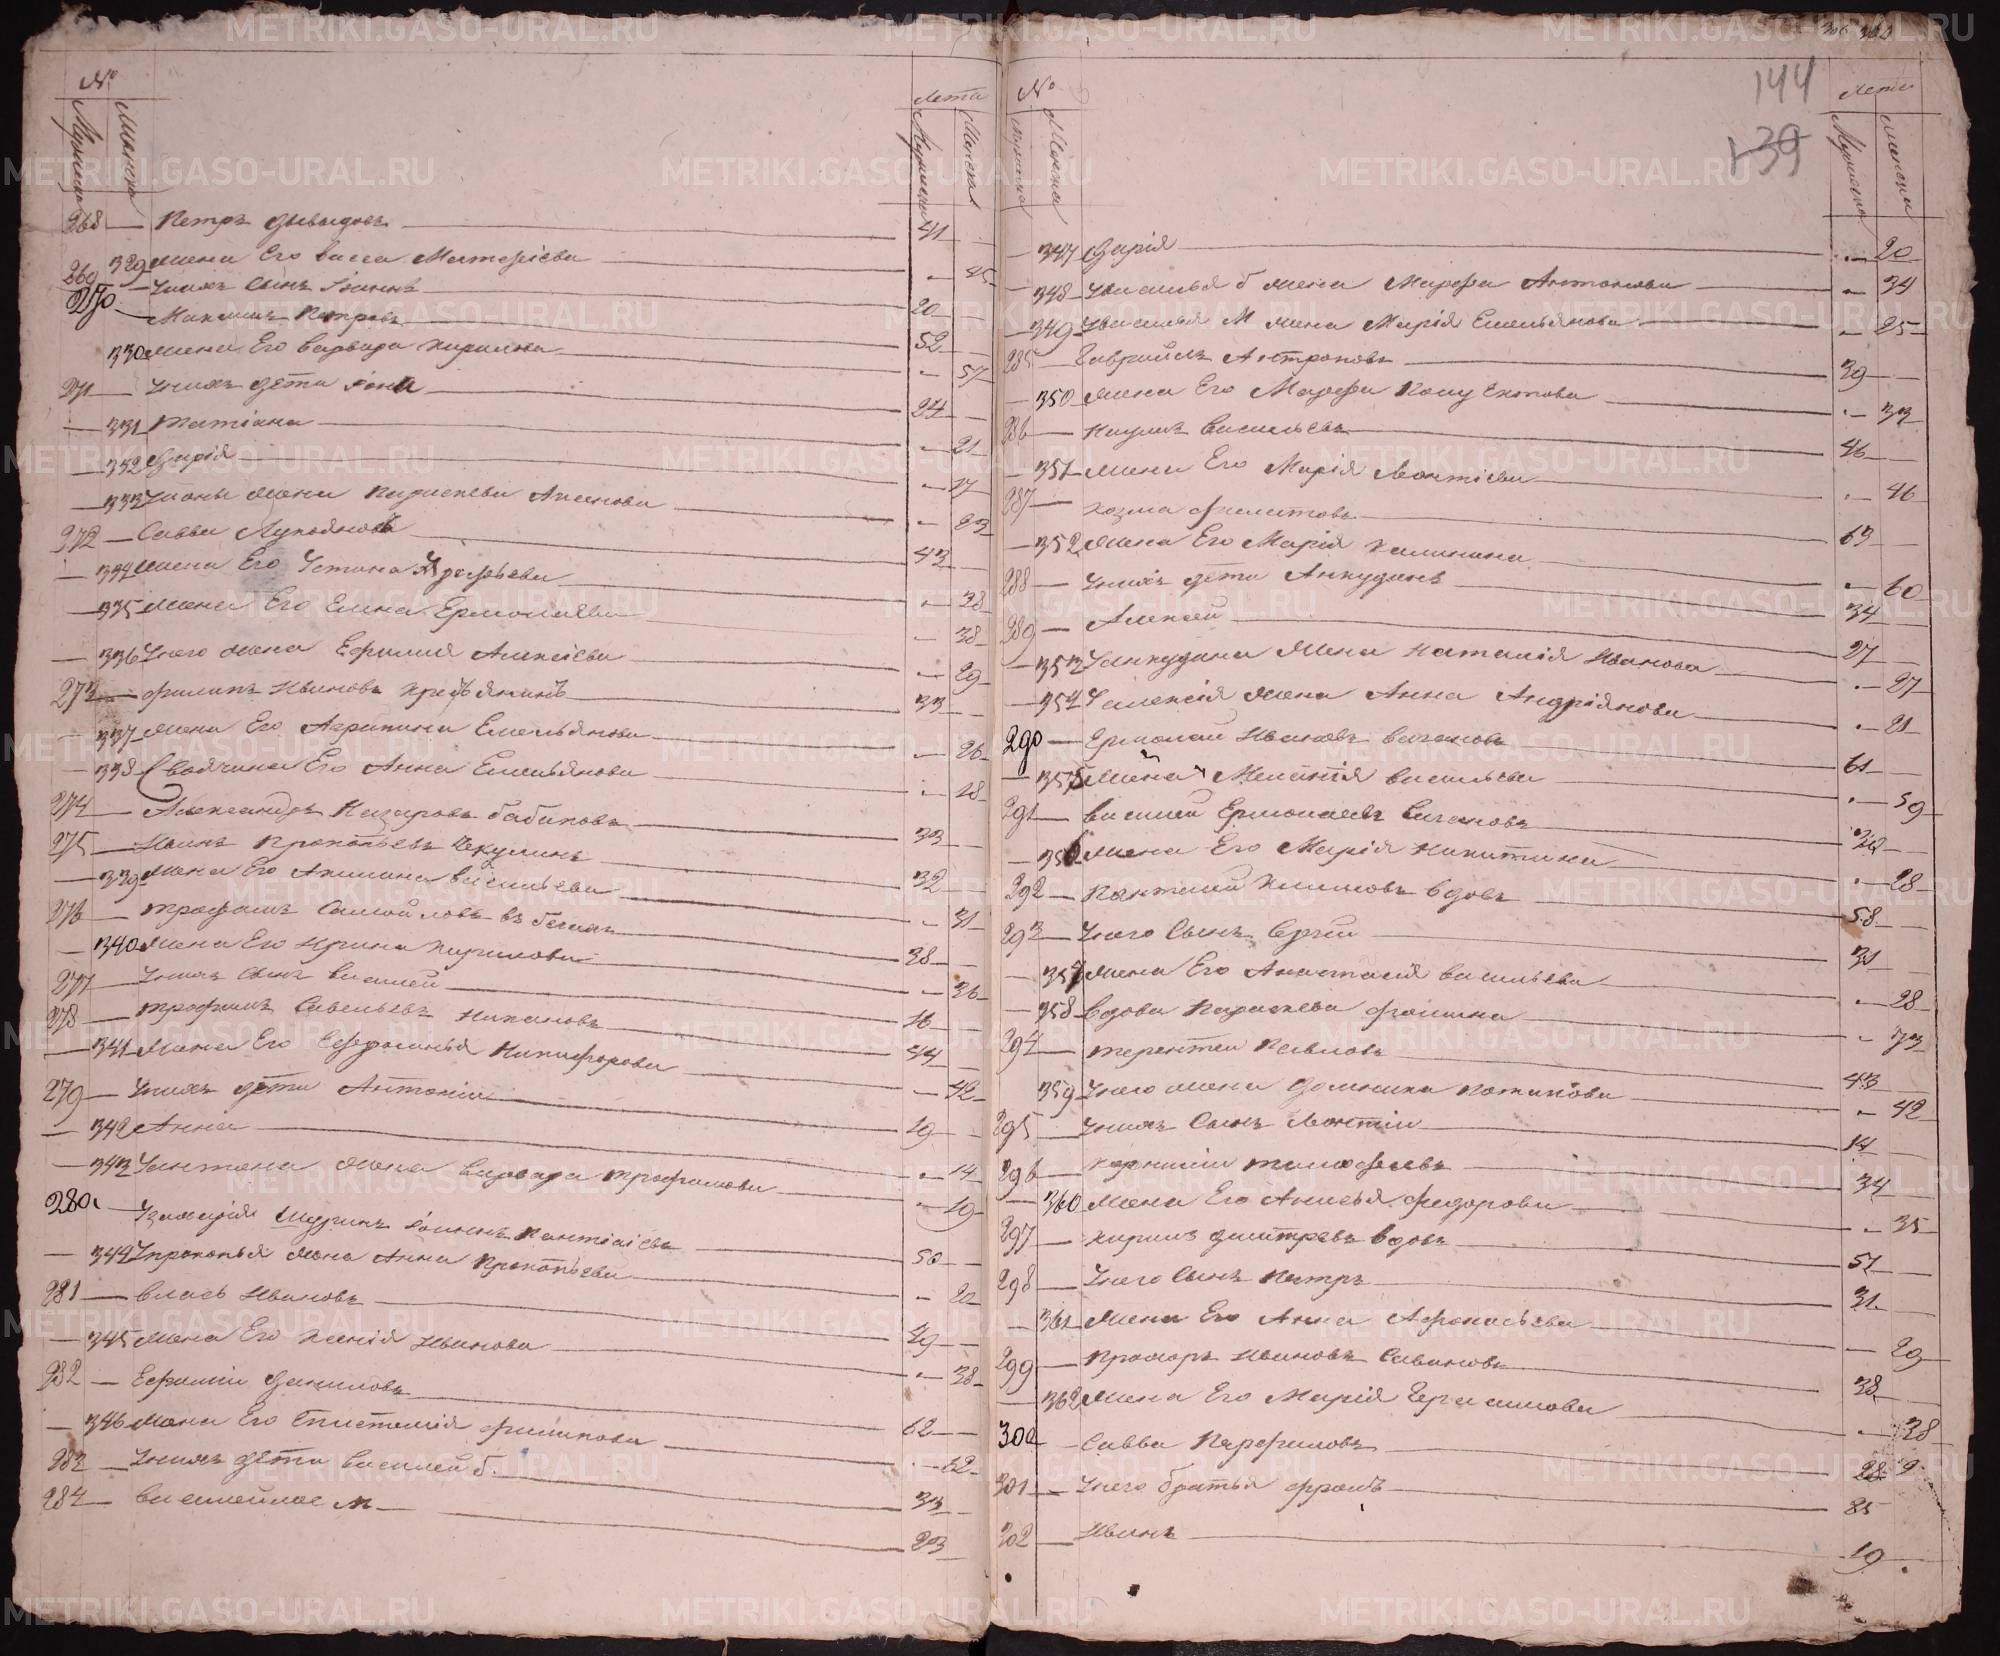 №
Мужеска
Женска
Лета
Мужеска
Женска
268 — Петръ Давыдовъ — 41
329 Жена Его Васса Матфіева — 45
269 — Уних Сынъ Іоаннъ — 20
270 — Максимъ Петровъ — 52
330 Жена Его Варвара Кирилова — 57
271 — Унихъ дети Іона — 24
331 Татіана — 21
332 Дарія — 17
333 Уіоны жена Параскева Аксенова — 23
272 — Савва Лукояновъ — 43
334 Жена Его Устина Дорофѣева — 38
335 Жена Его Елена Ермолаева — 38
336 Унего жена Ефимия Алексіева — 29
273 — Филипъ Ивановъ — 33
337 Жена Его Агрипина Емельянова — 26
338 Своячина Его Анна Емельянова — 18
274 — Александръ Назаровъ Бабиковъ — 33
275 — Иванъ Прокопьевъ — 32
339 Жена Его Акилина Васильева — 31
276 — Трофимъ Самойловъ въ бегахъ — 38
340 Жена Его Ирина Кирилова — 36
277 — Унихъ Сынъ Василей — 16
278 — Трофимъ Савельевъ — 44
341 Жена Его Ефросинья Никифорова — 42
279 — Унихъ дети Антоній — 19
342 Анна — 14
343 Уантона жена Варвара Трофимова — 19
280 — Іоаннъ — 50
344 Упрокопья жена Анна Прокопьева — 20
281 — Власъ Ивановъ — 49
345 Жена Его Ксенія Иванова — 38
282 — Ефимій Даниловъ — 62
346 Жена Его Епистимія Филипова — 52
283 — Унихъ дети Василей б. — 33
284 — Василей же м — 23
№
Мужеска
Женска
144
139
Лета
Мужеска
Женска
347 Дарія — 20
348 Увасилья б жена Марфа Антонова — 34
349 Увасилья м жена Марія Емельянова — 25
285 — Гавриилъ Антроповъ — 39
350 Жена Его Марфа — 33
286 — Наумъ Васильевъ — 46
351 Жена Его Марія Леонтіева — 46
287 — Козма Филатовъ — 63
352 Жена Его Марія Калинина — 60
288 — Унихъ дети Анкудинъ — 34
289 — Алексей — 27
353 Уанкудина Жена Наталія Иванова — 27
354 Уалексія жена Анна Андріянова — 21
290 — Ермолай Ивановъ — 61
355 Жена Меланія Васильева — 59
291 — Василей Ермолаевъ
356 Жена Его Марія Никитина — 28
292 — Пантелей Климовъ вдовъ — 58
293 — Унего Сынъ Сергей — 31
357 Жена Его Анастасія Васильева — 28
358 Вдова Параскева Фомина — 73
294 — Терентей Павловъ — 43
359 Унего жена Домника Потапова — 42
295 Унихъ Сынъ Леонтій — 14
296 — Корнилій Тимофеевъ — 34
360 Жена Его Анисья Федорова — 35
297 — Кирилъ Дмитревъ вдовъ — 51
298 — Унего Сынъ Петръ — 31
361 Жена Его Анна Афонасьева — 29
299 — Прохоръ Ивановъ Савиновъ — 38
362 Жена Его Марія Герасимова — 38
300 — Савва Парфиловъ — 28
301 — Унего братья Фролъ — 25
302 — Иванъ — 19